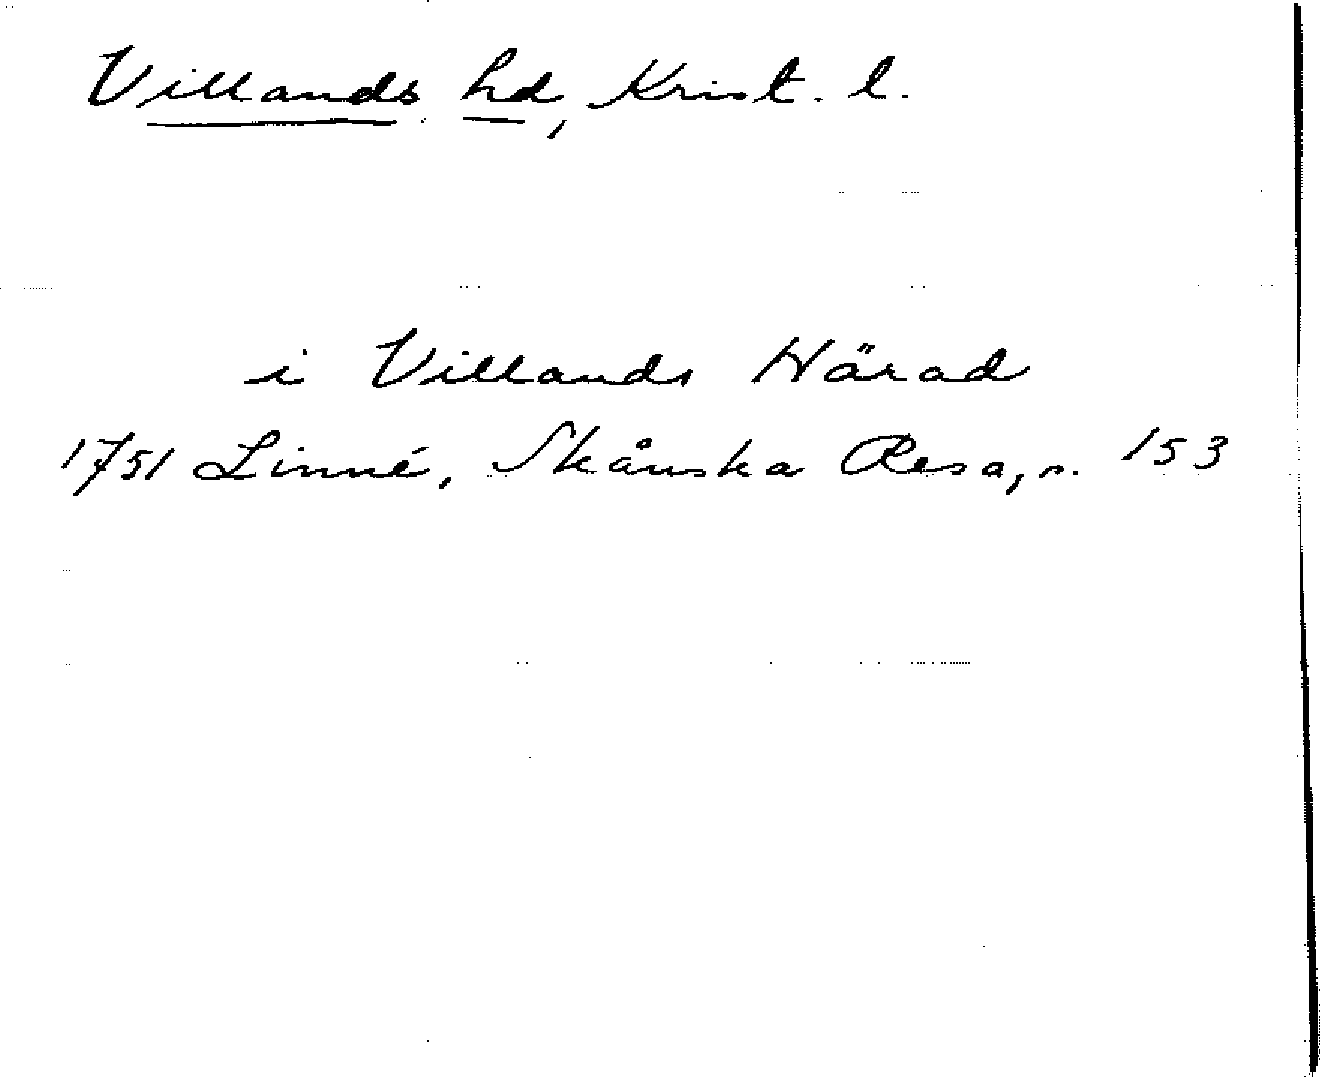 Villands hd, Krist. l.
i Villands Härad
1751 Linné, Skånska Resa, s. 153